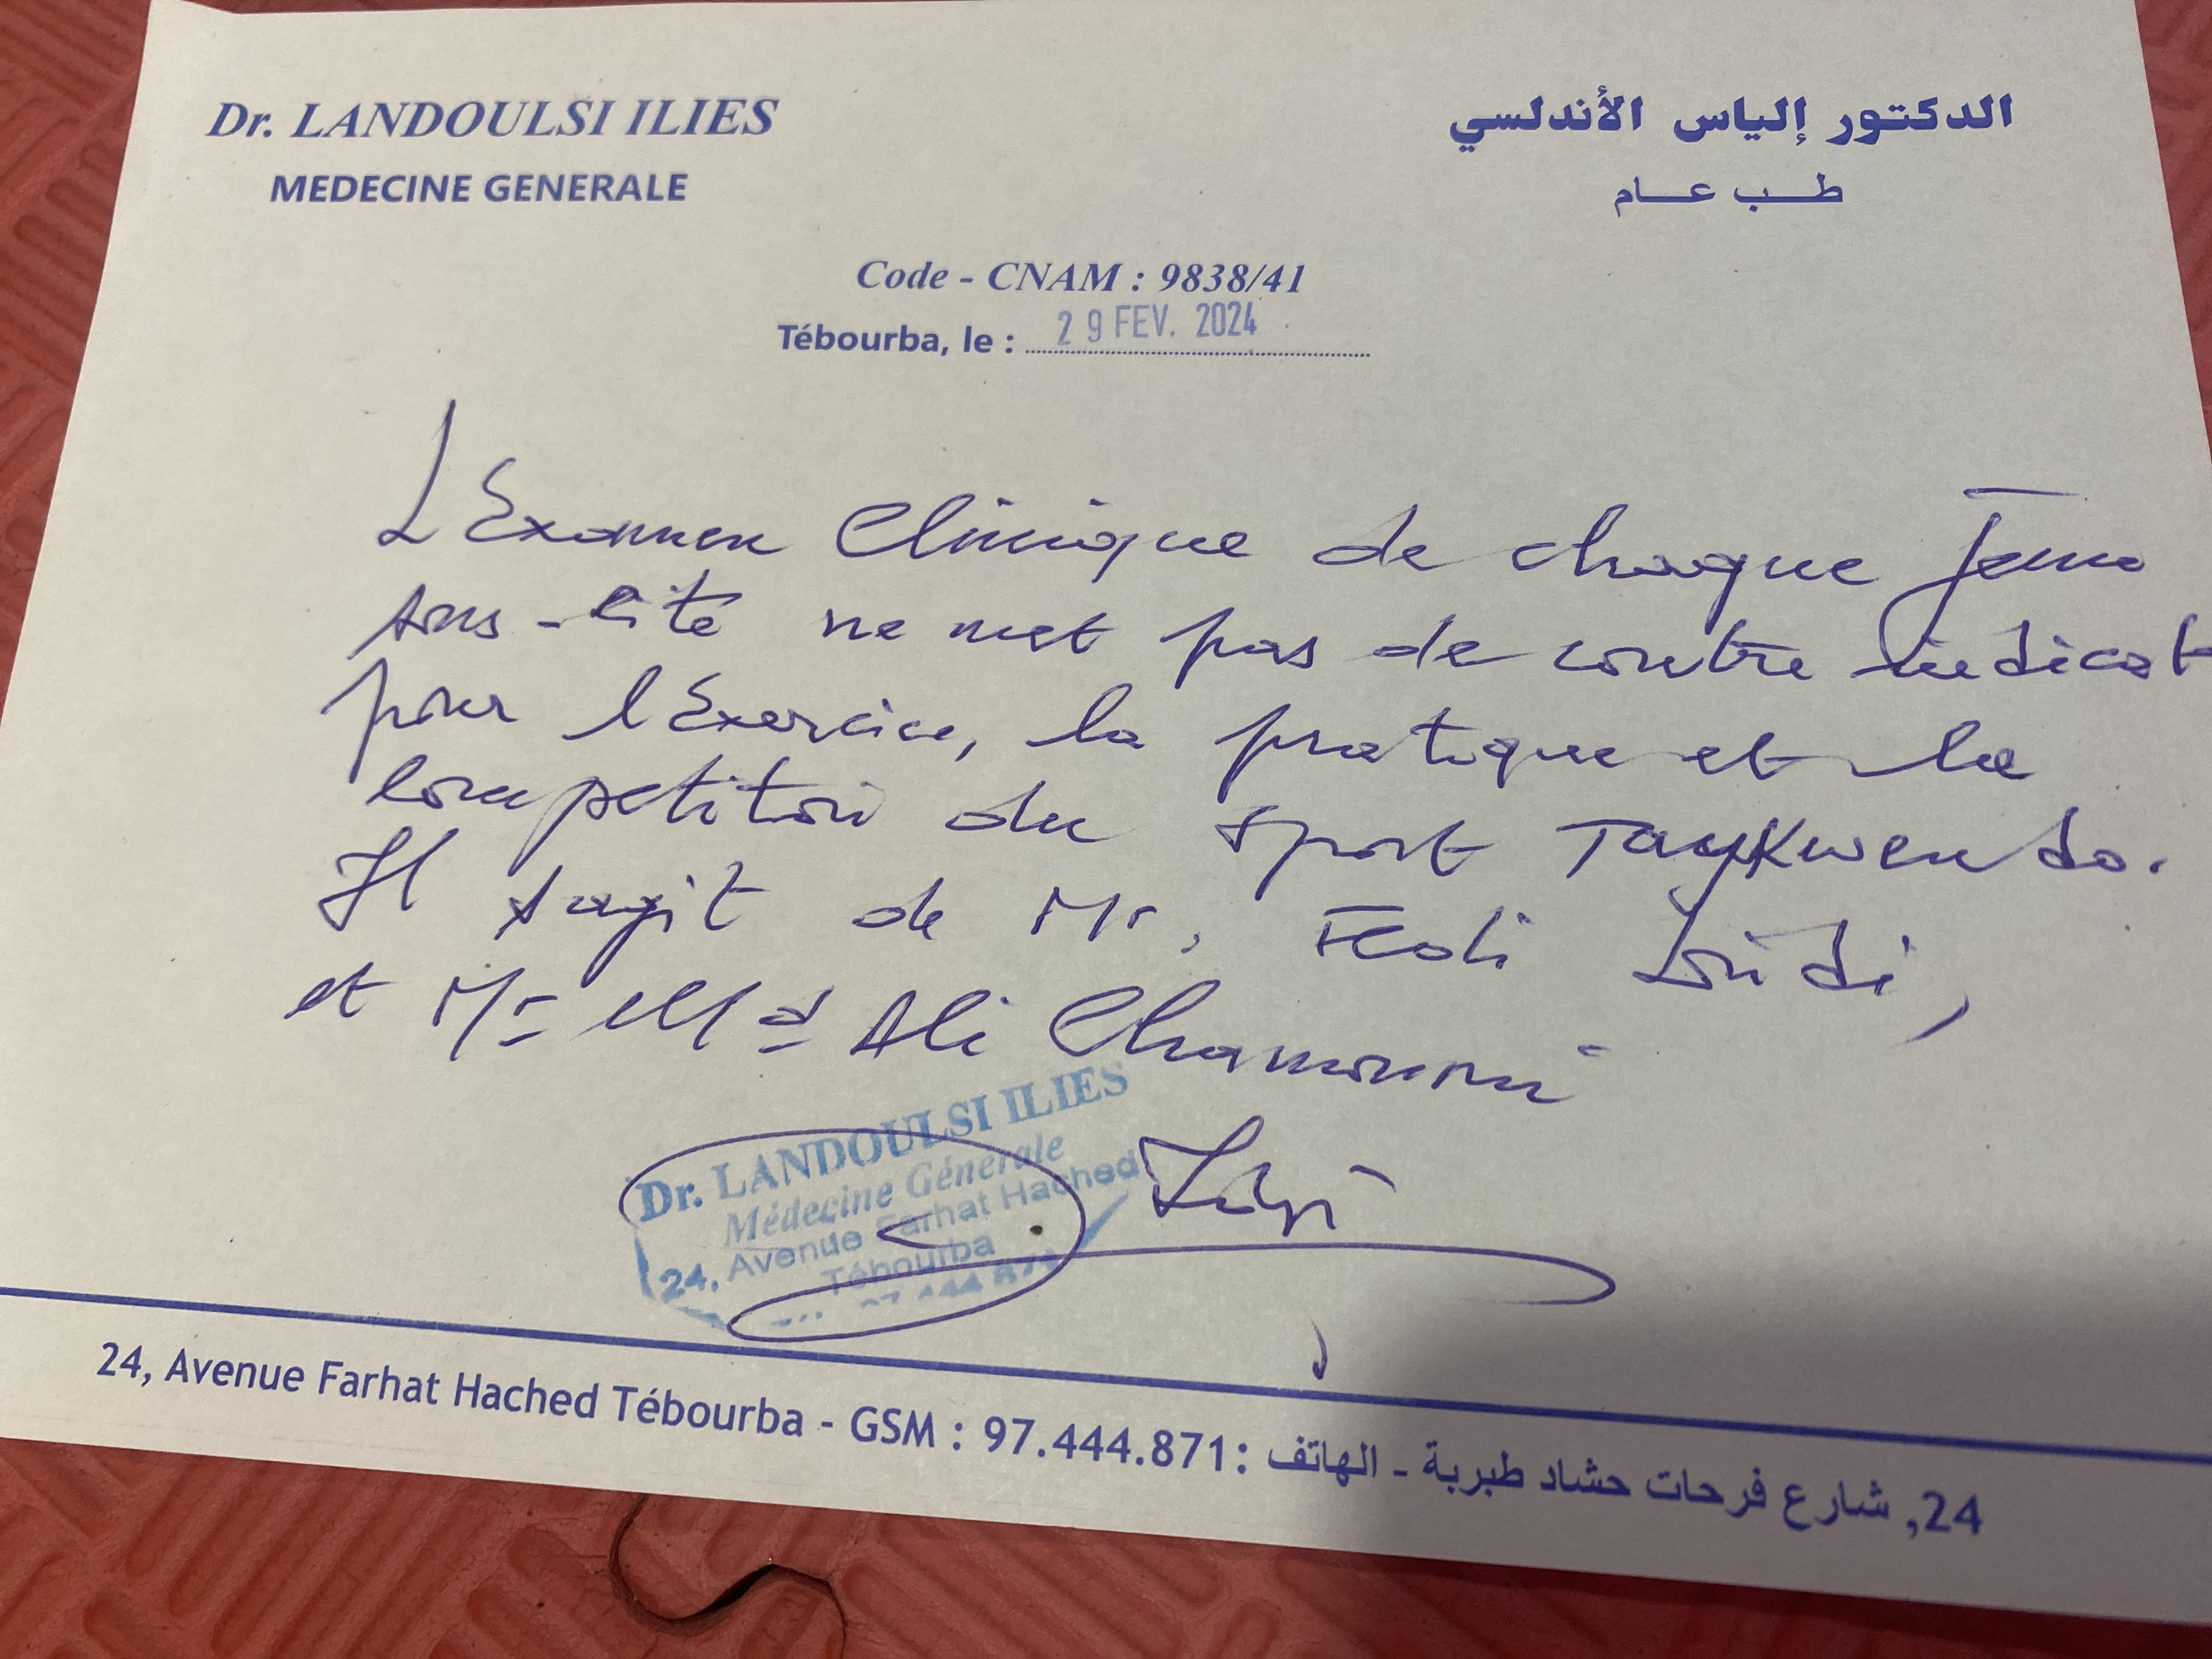 Dr. LANDOULSI ILIES
MEDECINE GENERALE
الدكتور إلياس الأندلسي
طب عام
Code - CNAM : 9838/41
Tébourba, le : 29 FEV. 2024
L'Examen Clinique de chaque
sous-cité ne met pas de contre indicat
pour l'Exercice, la pratique et la
compétition du sport Taykwendo.
Il s'agit de Mr,
et Mr Md Ali
Dr. LANDOULSI ILIES
Médecine Générale
24, Avenue Farhat Hached
Tébourba
97 444 871
24, Avenue Farhat Hached Tébourba - GSM : 97.444.871: الهاتف - شارع فرحات حشاد طبربة ,24